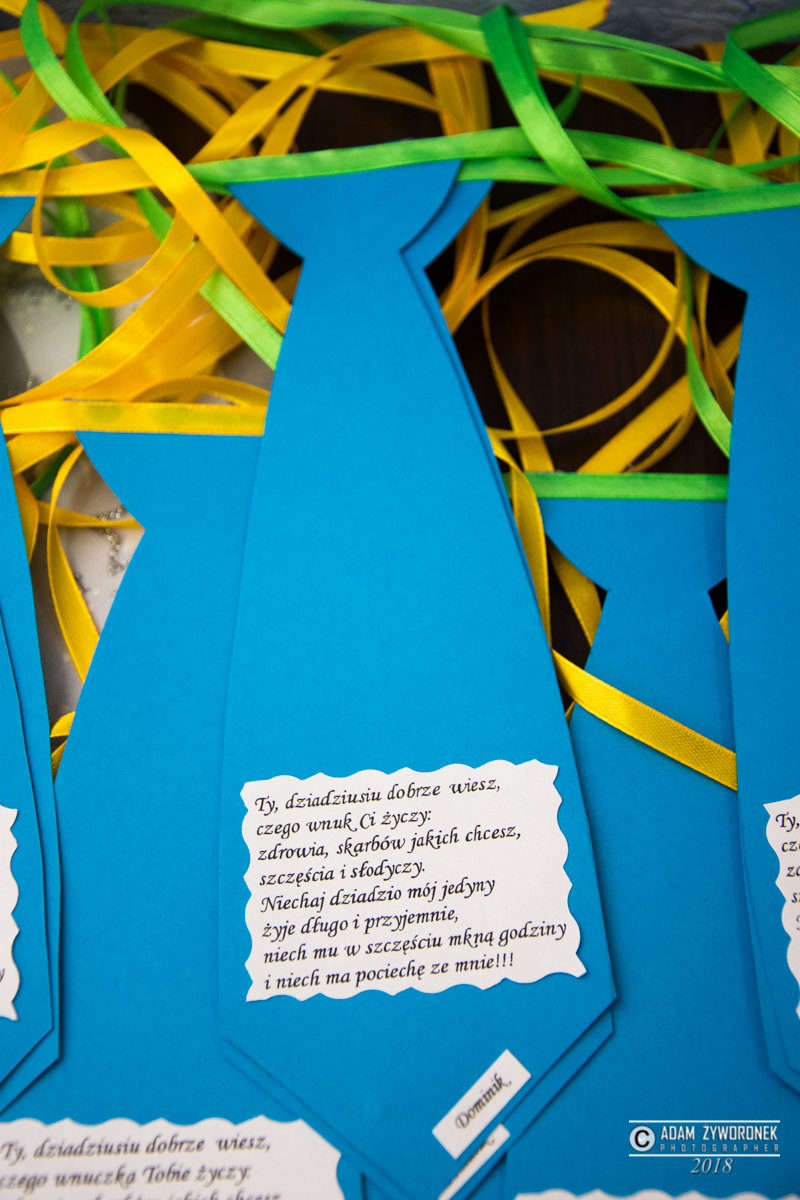 Ty, dziadziusiu dobrze wiesz,
czego wnuk Ci życzy:
zdrowia, skarbów jakich chcesz,
szczęścia i słodyczy.
Niechaj dziadzio mój jedyny
żyje długo i przyjemnie,
niech mu w szczęściu mkną godziny
i niech ma pociechę ze mnie!!!
Dominik
Ty, dziadziusiu dobrze wiesz,
czego wnuczka Tobie życzy:
Ty,
© ADAM ZYWORONEK
PHOTOGRAPHER
2018